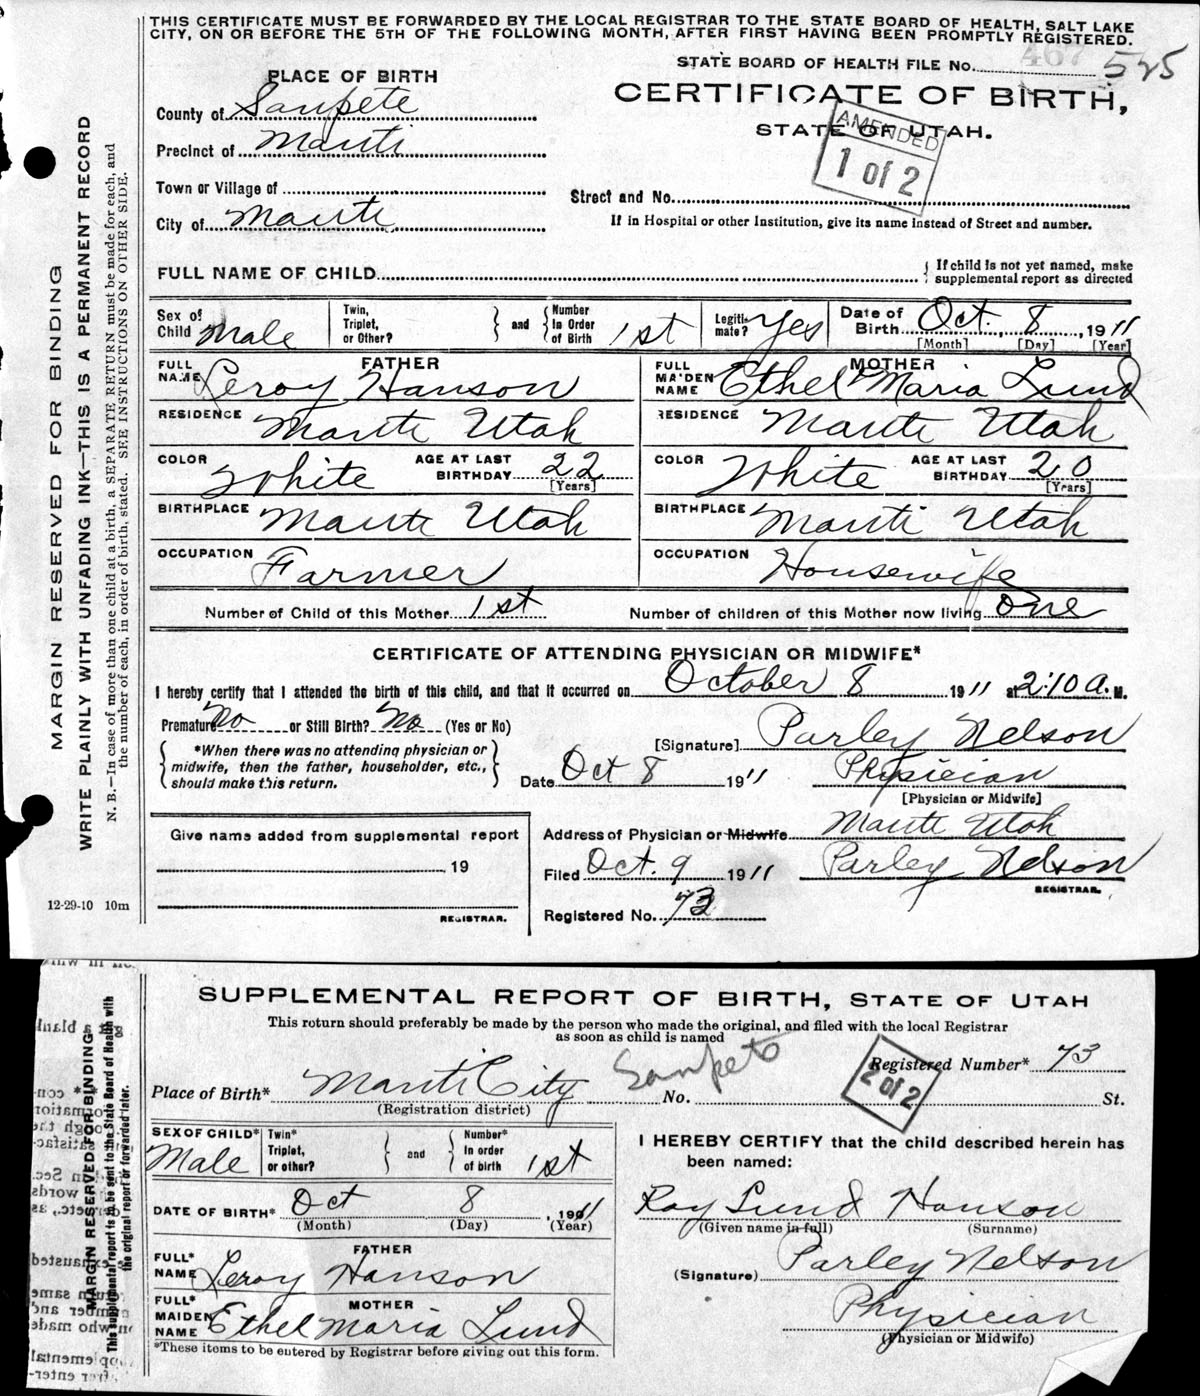 THIS CERTIFICATE MUST BE FORWARDED BY THE LOCAL REGISTRAR TO THE STATE BOARD OF HEALTH, SALT LAKE
CITY, ON OR BEFORE THE 5TH OF THE FOLLOWING MONTH, AFTER FIRST HAVING BEEN PROMPTLY REGISTERED.
STATE BOARD OF HEALTH FILE No. 467 525
PLACE OF BIRTH
CERTIFICATE OF BIRTH,
STATE OF UTAH.
AMENDED
1 of 2
County of Sanpete
Precinct of Manti
Town or Village of
Street and No.
City of Manti
If in Hospital or other Institution, give its name instead of Street and number.
FULL NAME OF CHILD
{ If child is not yet named, make
supplemental report as directed
Sex of Child Male
Twin, Triplet, or Other?
} and {
Number In Order of Birth 1st
Legiti-mate? Yes
Date of Birth Oct. 8, 1911
[Month] [Day] [Year]
FATHER
FULL NAME Leroy Hanson
MOTHER
FULL MAIDEN NAME Ethel Maria Lund
RESIDENCE Manti Utah
RESIDENCE Manti Utah
COLOR White AGE AT LAST BIRTHDAY 22 [Years]
COLOR White AGE AT LAST BIRTHDAY 20 [Years]
BIRTHPLACE Manti Utah
BIRTHPLACE Manti Utah
OCCUPATION Farmer
OCCUPATION Housewife
Number of Child of this Mother 1st
Number of children of this Mother now living One
CERTIFICATE OF ATTENDING PHYSICIAN OR MIDWIFE*
I hereby certify that I attended the birth of this child, and that it occurred on October 8 1911 at 2:10 A. M.
Premature No or Still Birth? No (Yes or No)
[Signature] Parley Nelson
{ *When there was no attending physician or
midwife, then the father, householder, etc.,
should make this return. }
Date Oct 8 1911
Physician
[Physician or Midwife]
Address of Physician or Midwife Manti Utah
Give name added from supplemental report
19
REGISTRAR.
Filed Oct. 9 1911
Parley Nelson
REGISTRAR.
Registered No. 73
12-29-10 10m
MARGIN RESERVED FOR BINDING
WRITE PLAINLY WITH UNFADING INK—THIS IS A PERMANENT RECORD
N. B.—In case of more than one child at a birth, a SEPARATE RETURN must be made for each, and
the number of each, in order of birth, stated. SEE INSTRUCTIONS ON OTHER SIDE.
SUPPLEMENTAL REPORT OF BIRTH, STATE OF UTAH
This return should preferably be made by the person who made the original, and filed with the local Registrar
as soon as child is named
Registered Number* 73
2 of 2
Place of Birth* Manti City Sanpete No. St.
(Registration district)
SEX OF CHILD* Male
Twin* Triplet, or other?
} and {
Number* In order of birth 1st
DATE OF BIRTH* Oct 8, 1911
(Month) (Day) (Year)
FATHER
FULL* NAME Leroy Hanson
MOTHER
FULL* MAIDEN NAME Ethel Maria Lund
*These items to be entered by Registrar before giving out this form.
I HEREBY CERTIFY that the child described herein has
been named:
Ray Lund Hanson
(Given name in full) (Surname)
(Signature) Parley Nelson
Physician
(Physician or Midwife)
MARGIN RESERVED FOR BINDING
This supplemental report is to be sent to the State Board of Health with
the original report or forwarded later.